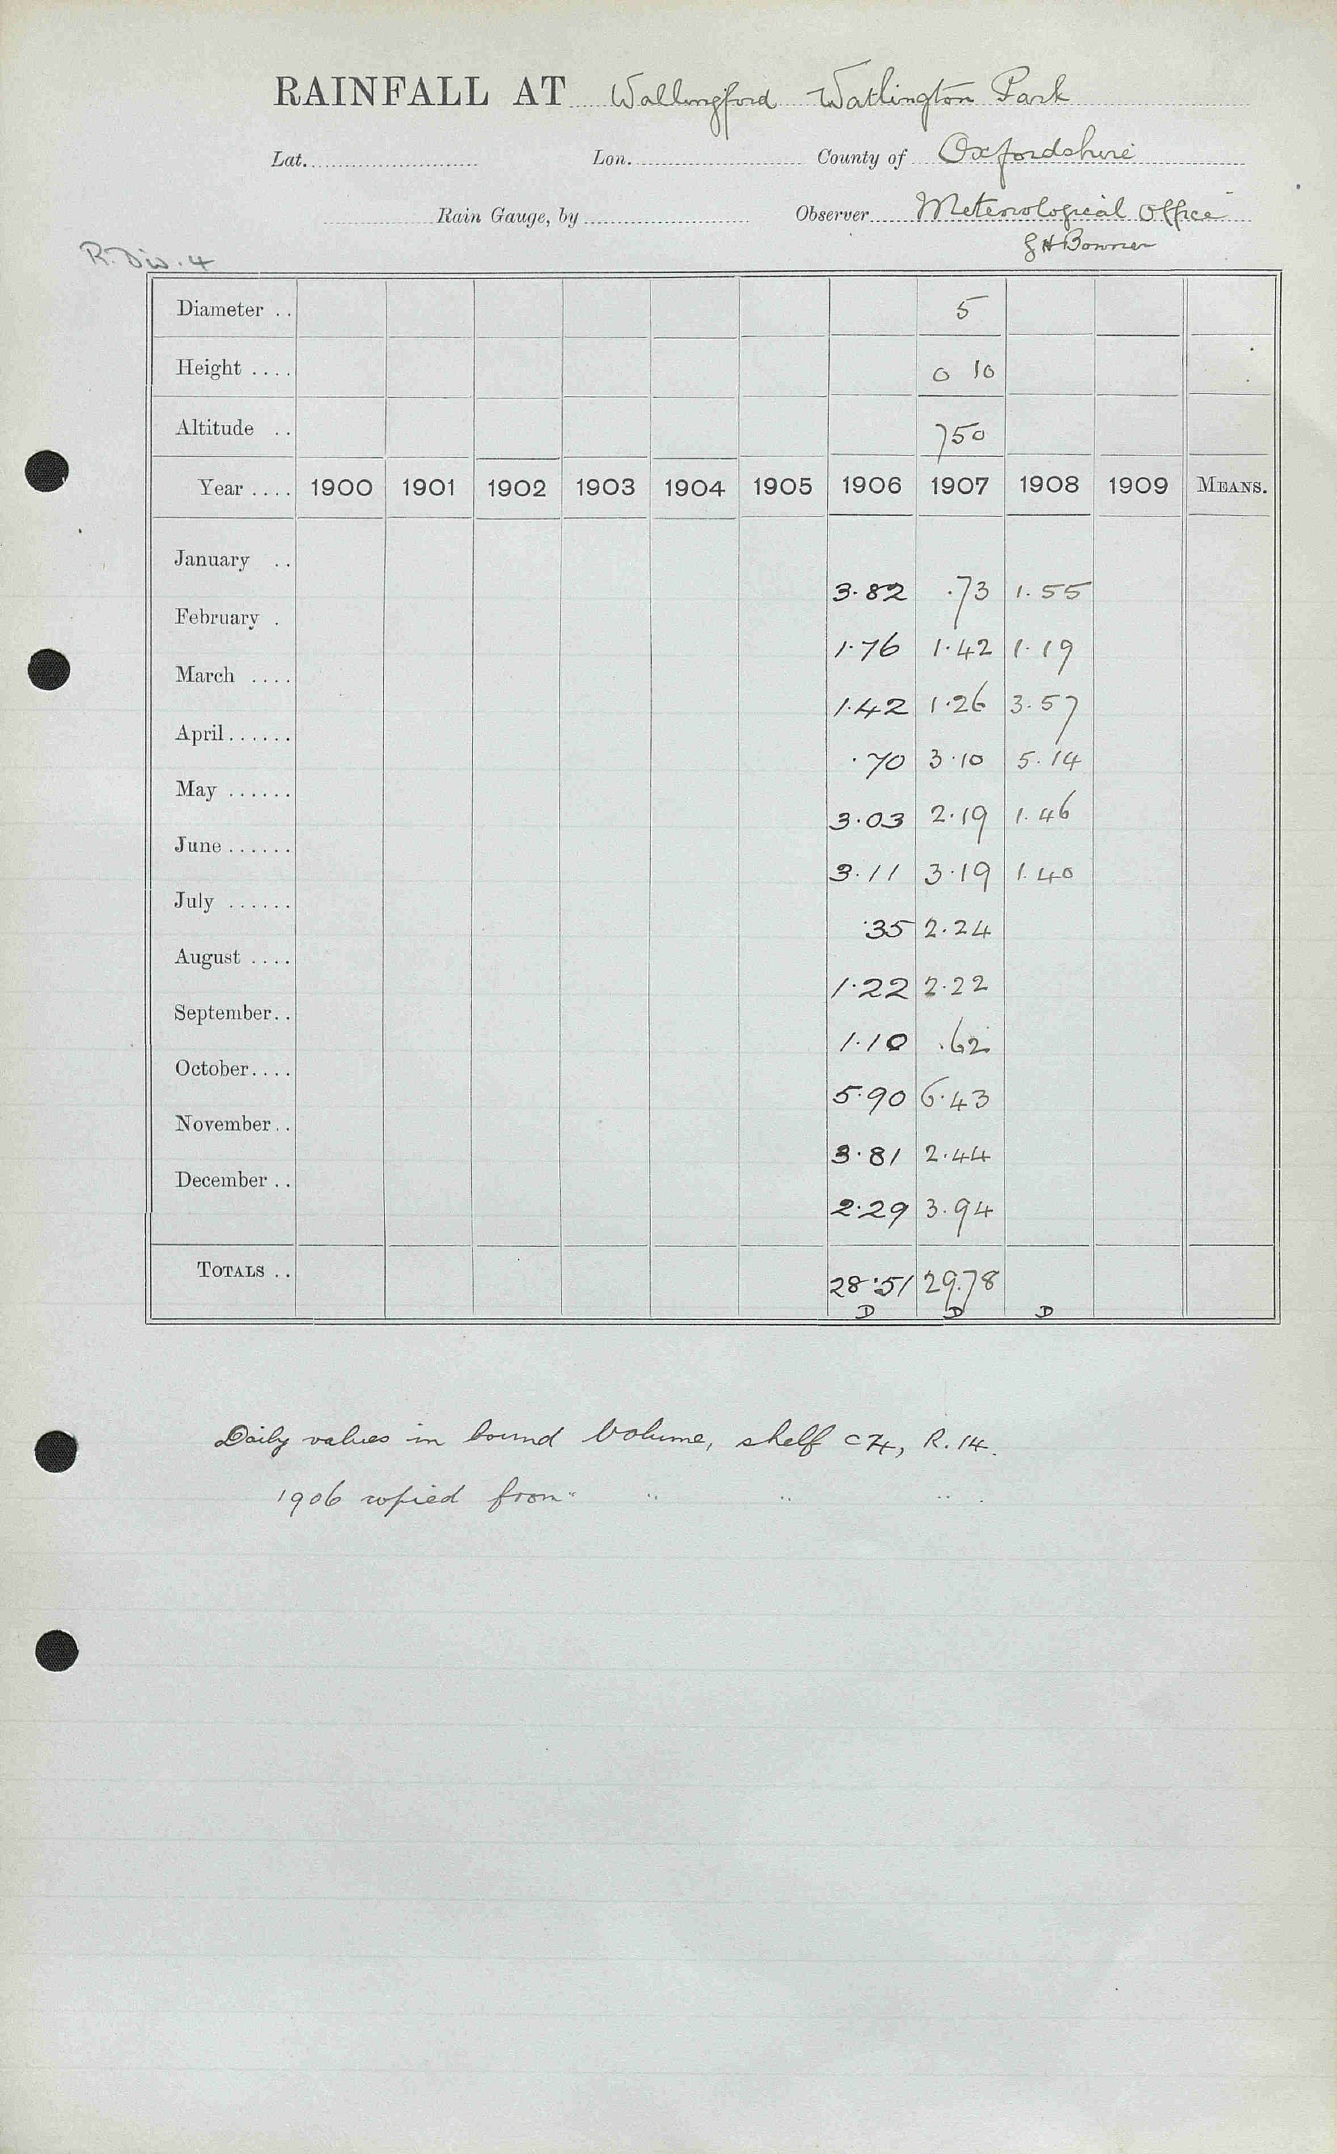 RAINFALL AT Wallingford Watlington Park
Lat. Lon. County of Oxfordshire
Rain Gauge, by Observer Meteorological Office
G H Bonner
R. Div. 4
Diameter .. 5
Height .... 0 10
Altitude .. 750
Year .... 1900 1901 1902 1903 1904 1905 1906 1907 1908 1909 MEANS.
January .. 3.82 .73 1.55
February . 1.76 1.42 1.19
March .... 1.42 1.26 3.57
April...... .70 3.10 5.14
May ...... 3.03 2.19 1.46
June ...... 3.11 3.19 1.40
July ...... .35 2.24
August .... 1.22 2.22
September.. 1.10 .62
October.... 5.90 6.43
November.. 3.81 2.44
December .. 2.29 3.94
TOTALS .. 28.51 29.78
D D D
Daily values in bound Volume, shelf C 74, R. 14.
1906 copied from " " " "